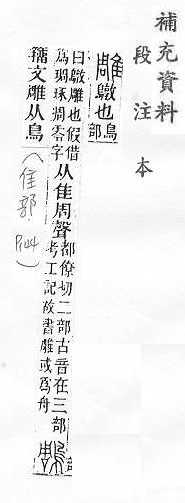 補充資料
段注本
雕 鷻也 鳥部
曰鷻雕也假借
爲琱琢凋零字
从隹周聲
都僚切二部古音在三部
考工記故書雕或爲舟
鵰
籒文雕从鳥
(隹部